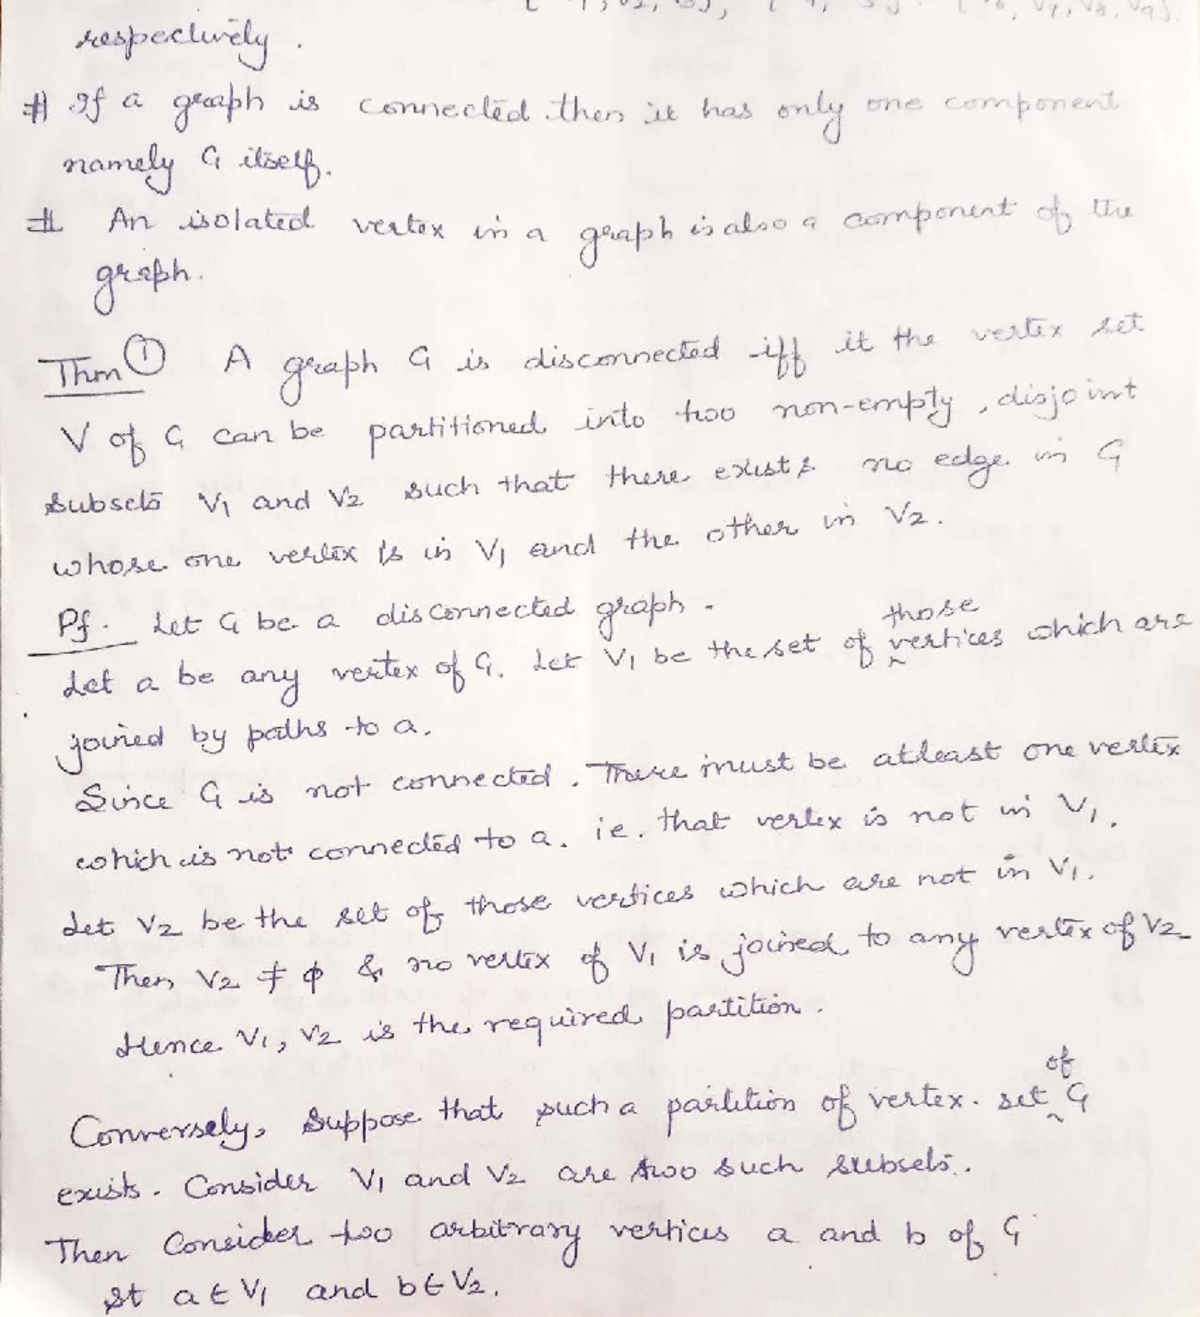 V7, V8, V9}.
respectively.
# If a graph is connected then it has only one component
namely G itself.
# An isolated vertex in a graph is also a component of the
graph.
Thm ① A graph G is disconnected iff it the vertex set
V of G can be partitioned into two non-empty, disjoint
subsets V1 and V2 such that there exists no edge in G
whose one vertex is in V1 and the other in V2.
Pf. Let G be a disconnected graph.
Let a be any vertex of G. Let V1 be the set of those vertices which are
joined by paths to a.
Since G is not connected. There must be atleast one vertex
which is not connected to a. ie. that vertex is not in V1.
Let V2 be the set of those vertices which are not in V1.
Then V2 ≠ ϕ & no vertex of V1 is joined to any vertex of V2
Hence V1, V2 is the required partition.
Conversely, Suppose that such a partition of vertex set of G
exists. Consider V1 and V2 are two such subsets.
Then Consider two arbitrary vertices a and b of G
st a ∈ V1 and b ∈ V2.